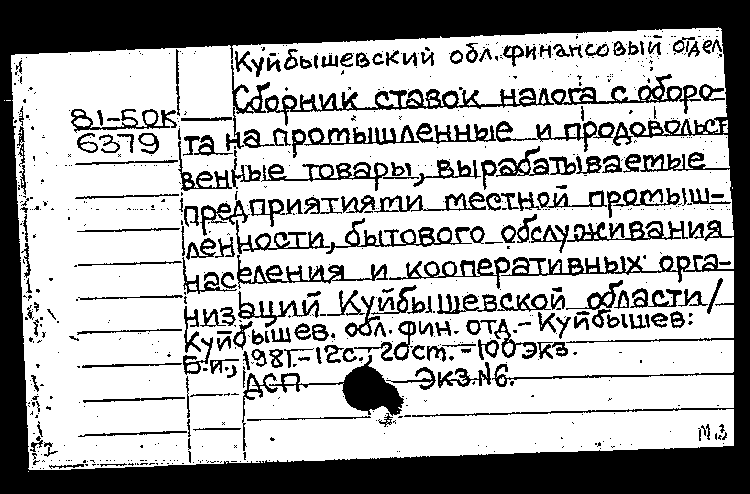 Куйбышевский обл. финансовый отдел
81-50К
6379
Сборник ставок налога с оборо-
та на промышленные и продовольст
венные товары, вырабатываемые
предприятиями местной промыш-
ленности, бытового обслуживания
населения и кооперативных орга-
низаций Куйбышевской области/
Куйбышев. обл. фин. отд. - Куйбышев:
Б.и., 1981. - 12с.; 20ст. - 100 экз.
ДСП. Экз.№6.
М.3